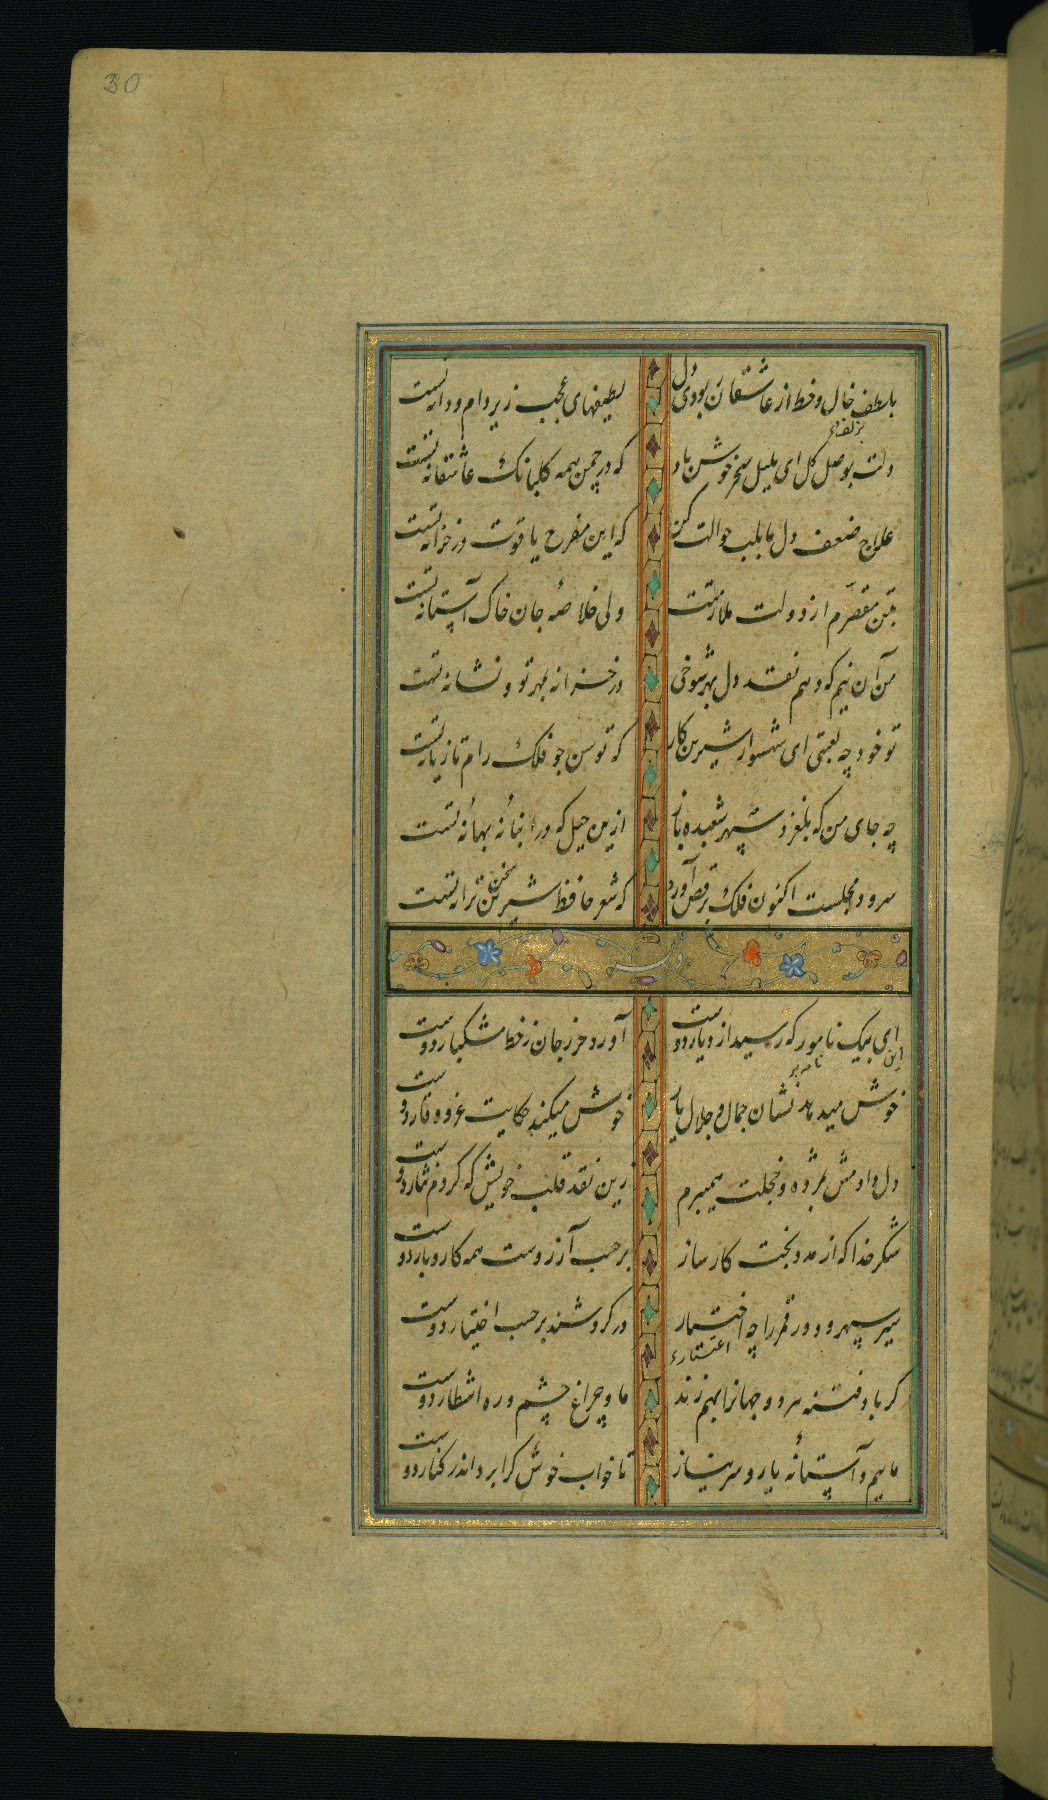 30
بلطف خال و خط از عاشقان ربودی دل
لطیفهای عجب زیر دام و دانه تست
دلت بوصل گل ای بلبل سحر خوش باد
که در چمن همه گلبانک عاشقانه تست
علاج ضعف دل ما بلب حوالت کن
که این مفرح یاقوت در خزانه تست
بتن مقصرم از دولت ملازمتت
ولی خلاصهٔ جان خاک آستانه تست
من آن نیم که دهم نقد دل بهر شوخی
در خزانه بمهر تو و نشانه تست
تو خود چه لعبتی ای شهسوار شیرین کار
که توسن جو فلک رام تازیانه تست
چه جای من که بلغزد سپهر شعبده باز
ازین حیل که در انبانهٔ بهانهٔ تست
سرود مجلست اکنون فلک برقص آورد
که شعر حافظ شیرین سخن ترانه تست
این بیک نامور که رسید از دیار دوست
نامه بر
آورد حرز جان ز خط مشکبار دوست
خوش میدهد نشان جمال و جلال یار
خوش میکند حکایت عز و وقار دوست
دل دادمش بمژده و خجلت همیبرم
زین نقد قلب خویش که کردم نثار دوست
شکر خدا که از مدد بخت کارساز
بر حسب آرزوست همه کار و بار دوست
سیر سپهر و دور قمر را چه اختیار
در گردشند بر حسب اختیار دوست
گر باد فتنه هر دو جهانرا بهم زند
ما و چراغ چشم و ره انتظار دوست
مائیم و آستانهٔ یار و سر نیاز
تا خواب خوش کرا برد اندر کنار دوست